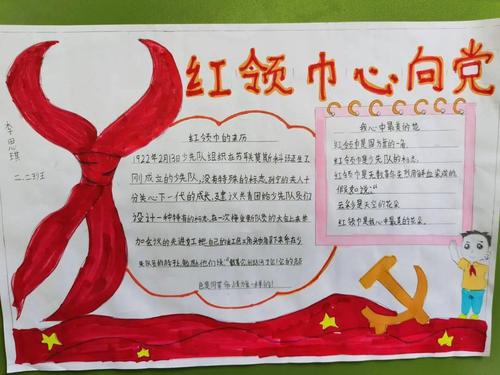 红领巾心向党
李思琪
二.二班
红领巾的来历
1922年2月13日少先队组织在苏联莫斯科诞生了
刚成立的少先队,没有特殊的标志,列宁的夫人十
分关心下一代的成长,建议共青团给少先队员们
设计一种特有的标志,在一次接受新队员的大会上来参
会的先进女工把自己的红色三角头巾摘下来系在少
先队员的脖子上,勉励他们说:
我心中最美的花
红领巾是国旗的一角
红领巾是少先队的标志
红领巾是无数革命先烈用鲜血染成的
假如说:
云彩是天空的花朵
红领巾是我心中最美的花朵